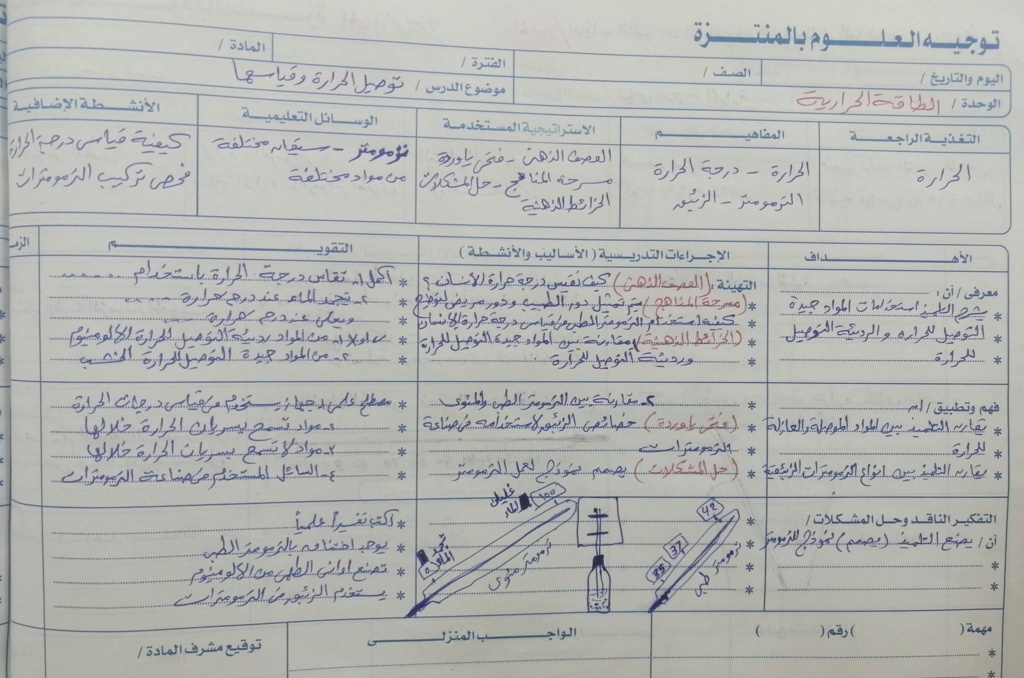 توجيه العلوم بالمنتزة
اليوم والتاريخ /
الصف /
الفترة /
المادة /
الوحدة / الطاقة الحرارية
موضوع الدرس / توصيل الحرارة وقياسها
التغذية الراجعة
المفاهيم
الاستراتيجية المستخدمة
الوسائل التعليمية
الأنشطة الإضافية
الحرارة
الحرارة - درجة الحرارة
الترمومتر - الزئبق
العصف الذهنى - فتحى ياوردة
مسرحة المناهج - حل المشكلات
الخرائط الذهنية
ترمومتر - سيقان مختلفة
من مواد مختلفة
كيفية قياس درجة الحرارة
فحص تركيب الترمومترات
الأهـداف
الإجراءات التدريسية ( الأساليب والأنشطة )
التقويم
معرفى / أن :
* يشرح التلميذ استخدامات المواد جيدة
* التوصيل للحرارة والرديئة التوصيل
* للحرارة
التهيئة : (العصف الذهنى) كيف نقيس درجة حرارة الإنسان ؟
* (مسرحة المناهج) يتم تمثيل دور الطبيب ودور مريض لتوضح
* كيفية استخدام الترمومتر الطبى فى قياس درجة حرارة الإنسان
* (الخرائط الذهنية) مقارنة بين المواد جيدة التوصيل للحرارة
* ورديئة التوصيل للحرارة
* أكمل ١- تقاس درجة الحرارة باستخدام ......
* ٢- يتجمد الماء عند درجة حرارة
* ويغلى عند درجة حرارة
* من المواد رديئة التوصيل للحرارة الألومنيوم
* من المواد جيدة التوصيل للحرارة الخشب
فهم وتطبيق / أن
* يقارن التلميذ بين المواد الموصلة والعازلة
* للحرارة
* يقارن التلميذ بين أنواع الترمومترات الزئبقية
* ٢- مقارنة بين الترمومتر الطبى والمئوى
* (فتحى ياوردة) خصائص الزئبق لاستخدامه فى صناعة
* الترمومترات
* (حل المشكلات) يصمم نموذج لعمل الترمومتر
* مصطلح علمى ١- جهاز يستخدم فى قياس درجات الحرارة
* ٢- مواد تسمح بسريان الحرارة خلالها
* ٣- مواد لا تسمح بسريان الحرارة خلالها
* ٤- السائل المستخدم فى صناعة الترمومترات
التفكير الناقد وحل المشكلات /
أن / يصنع التلميذ (يصمم) نموذج للترمومتر
42
37
35
ترمومتر طبى
100
غليان الماء
تجمد الماء
ترمومتر مئوى
* أكتب تفسيراً علمياً
* يوجد اختناق بالترمومتر الطبى
* تصنع أوانى الطهى من الألومنيوم
* يستخدم الزئبق فى الترمومترات
مهمة (        ) رقم (        )
الواجب المنزلى
توقيع مشرف المادة /